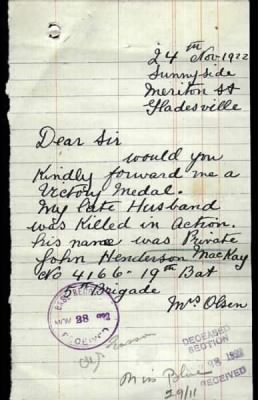 24th Nov-1922
Sunnyside
Meriton St
Gladesville
Dear Sir
would you
Kindly forward me a
Victory Medal.
My late Husband
was Killed in Action.
his name was Private
John Henderson MacKay
No 4166-19th Bat
5th Brigade
Mrs Olsen
NOV 28
RECEIVED
DECEASED
SECTION
RECEIVED
Miss
29/11